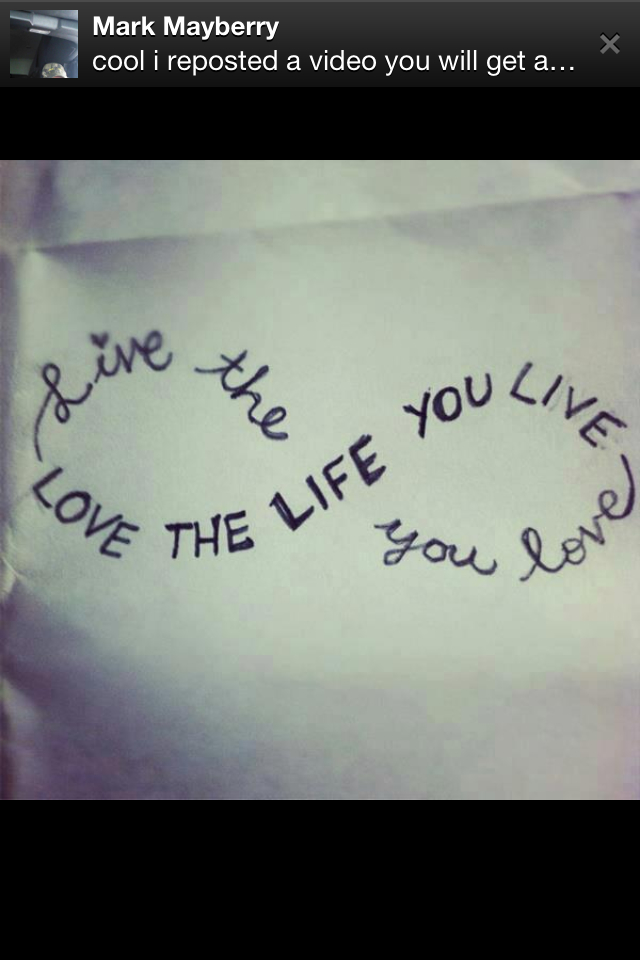 Mark Mayberry
cool i reposted a video you will get a...
Live the
LIFE
you love
LOVE THE LIFE YOU LIVE